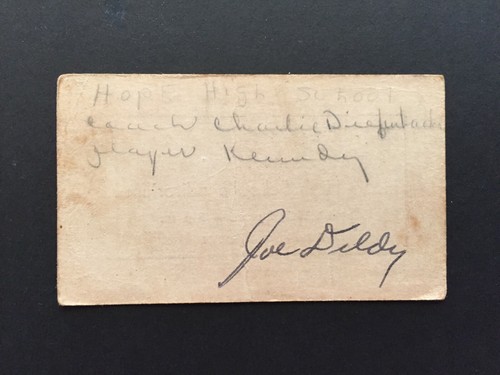 Hope High School
coach Charlie
player Kennedy
Joe Dildy